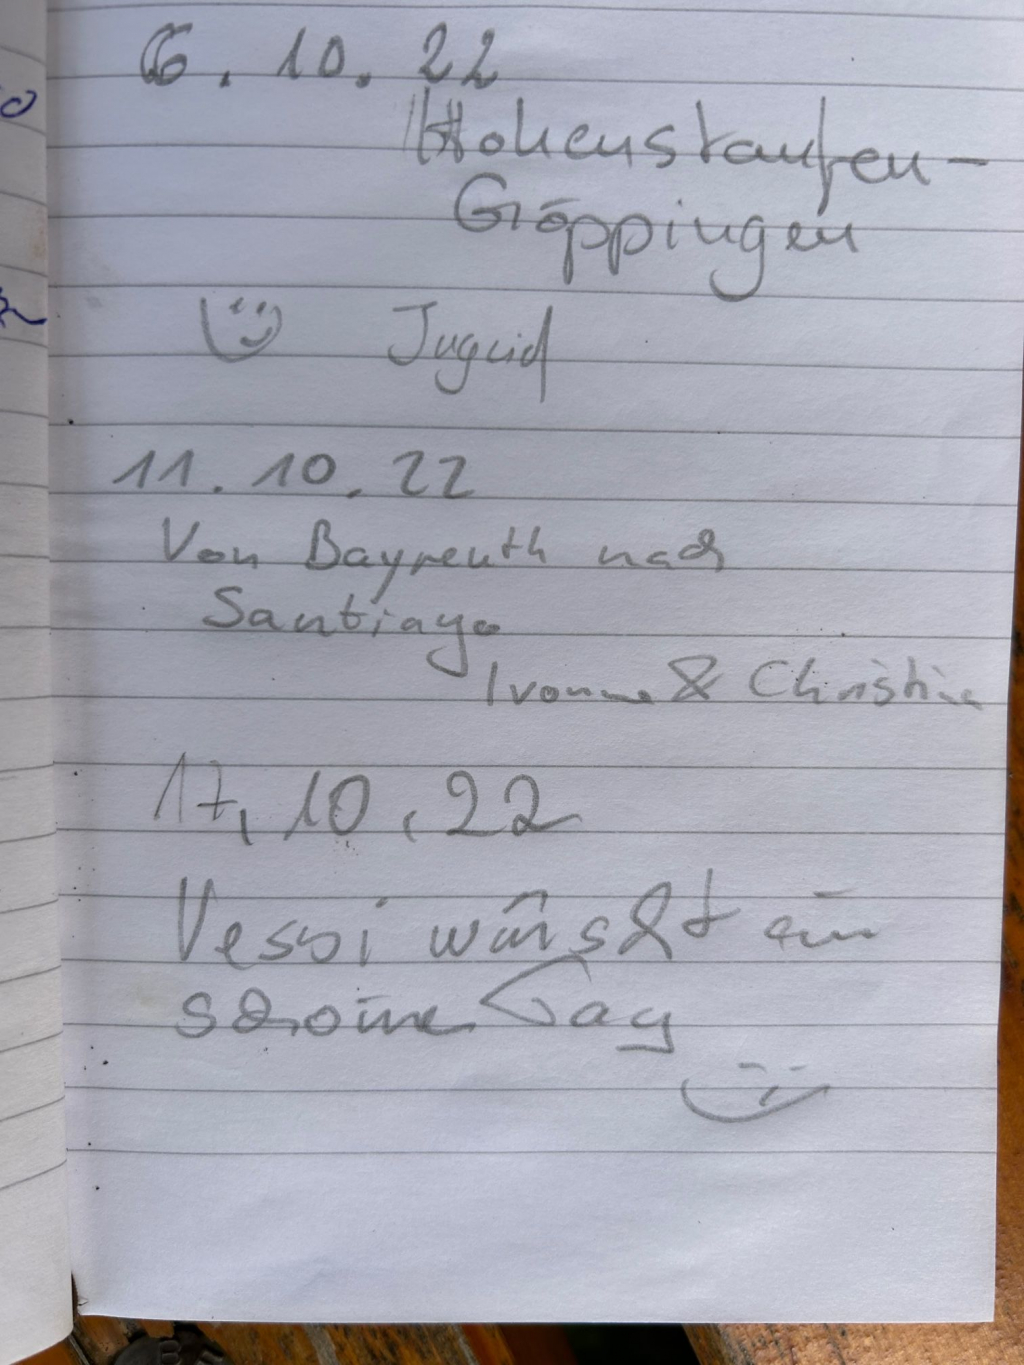 6.10.22
Hohenstaufen-
Göppingen
11.10.22
Von Bayreuth nach
Santiago
Ivonne & Christine
17.10.22
Vessi wünscht ein
schöne Tag